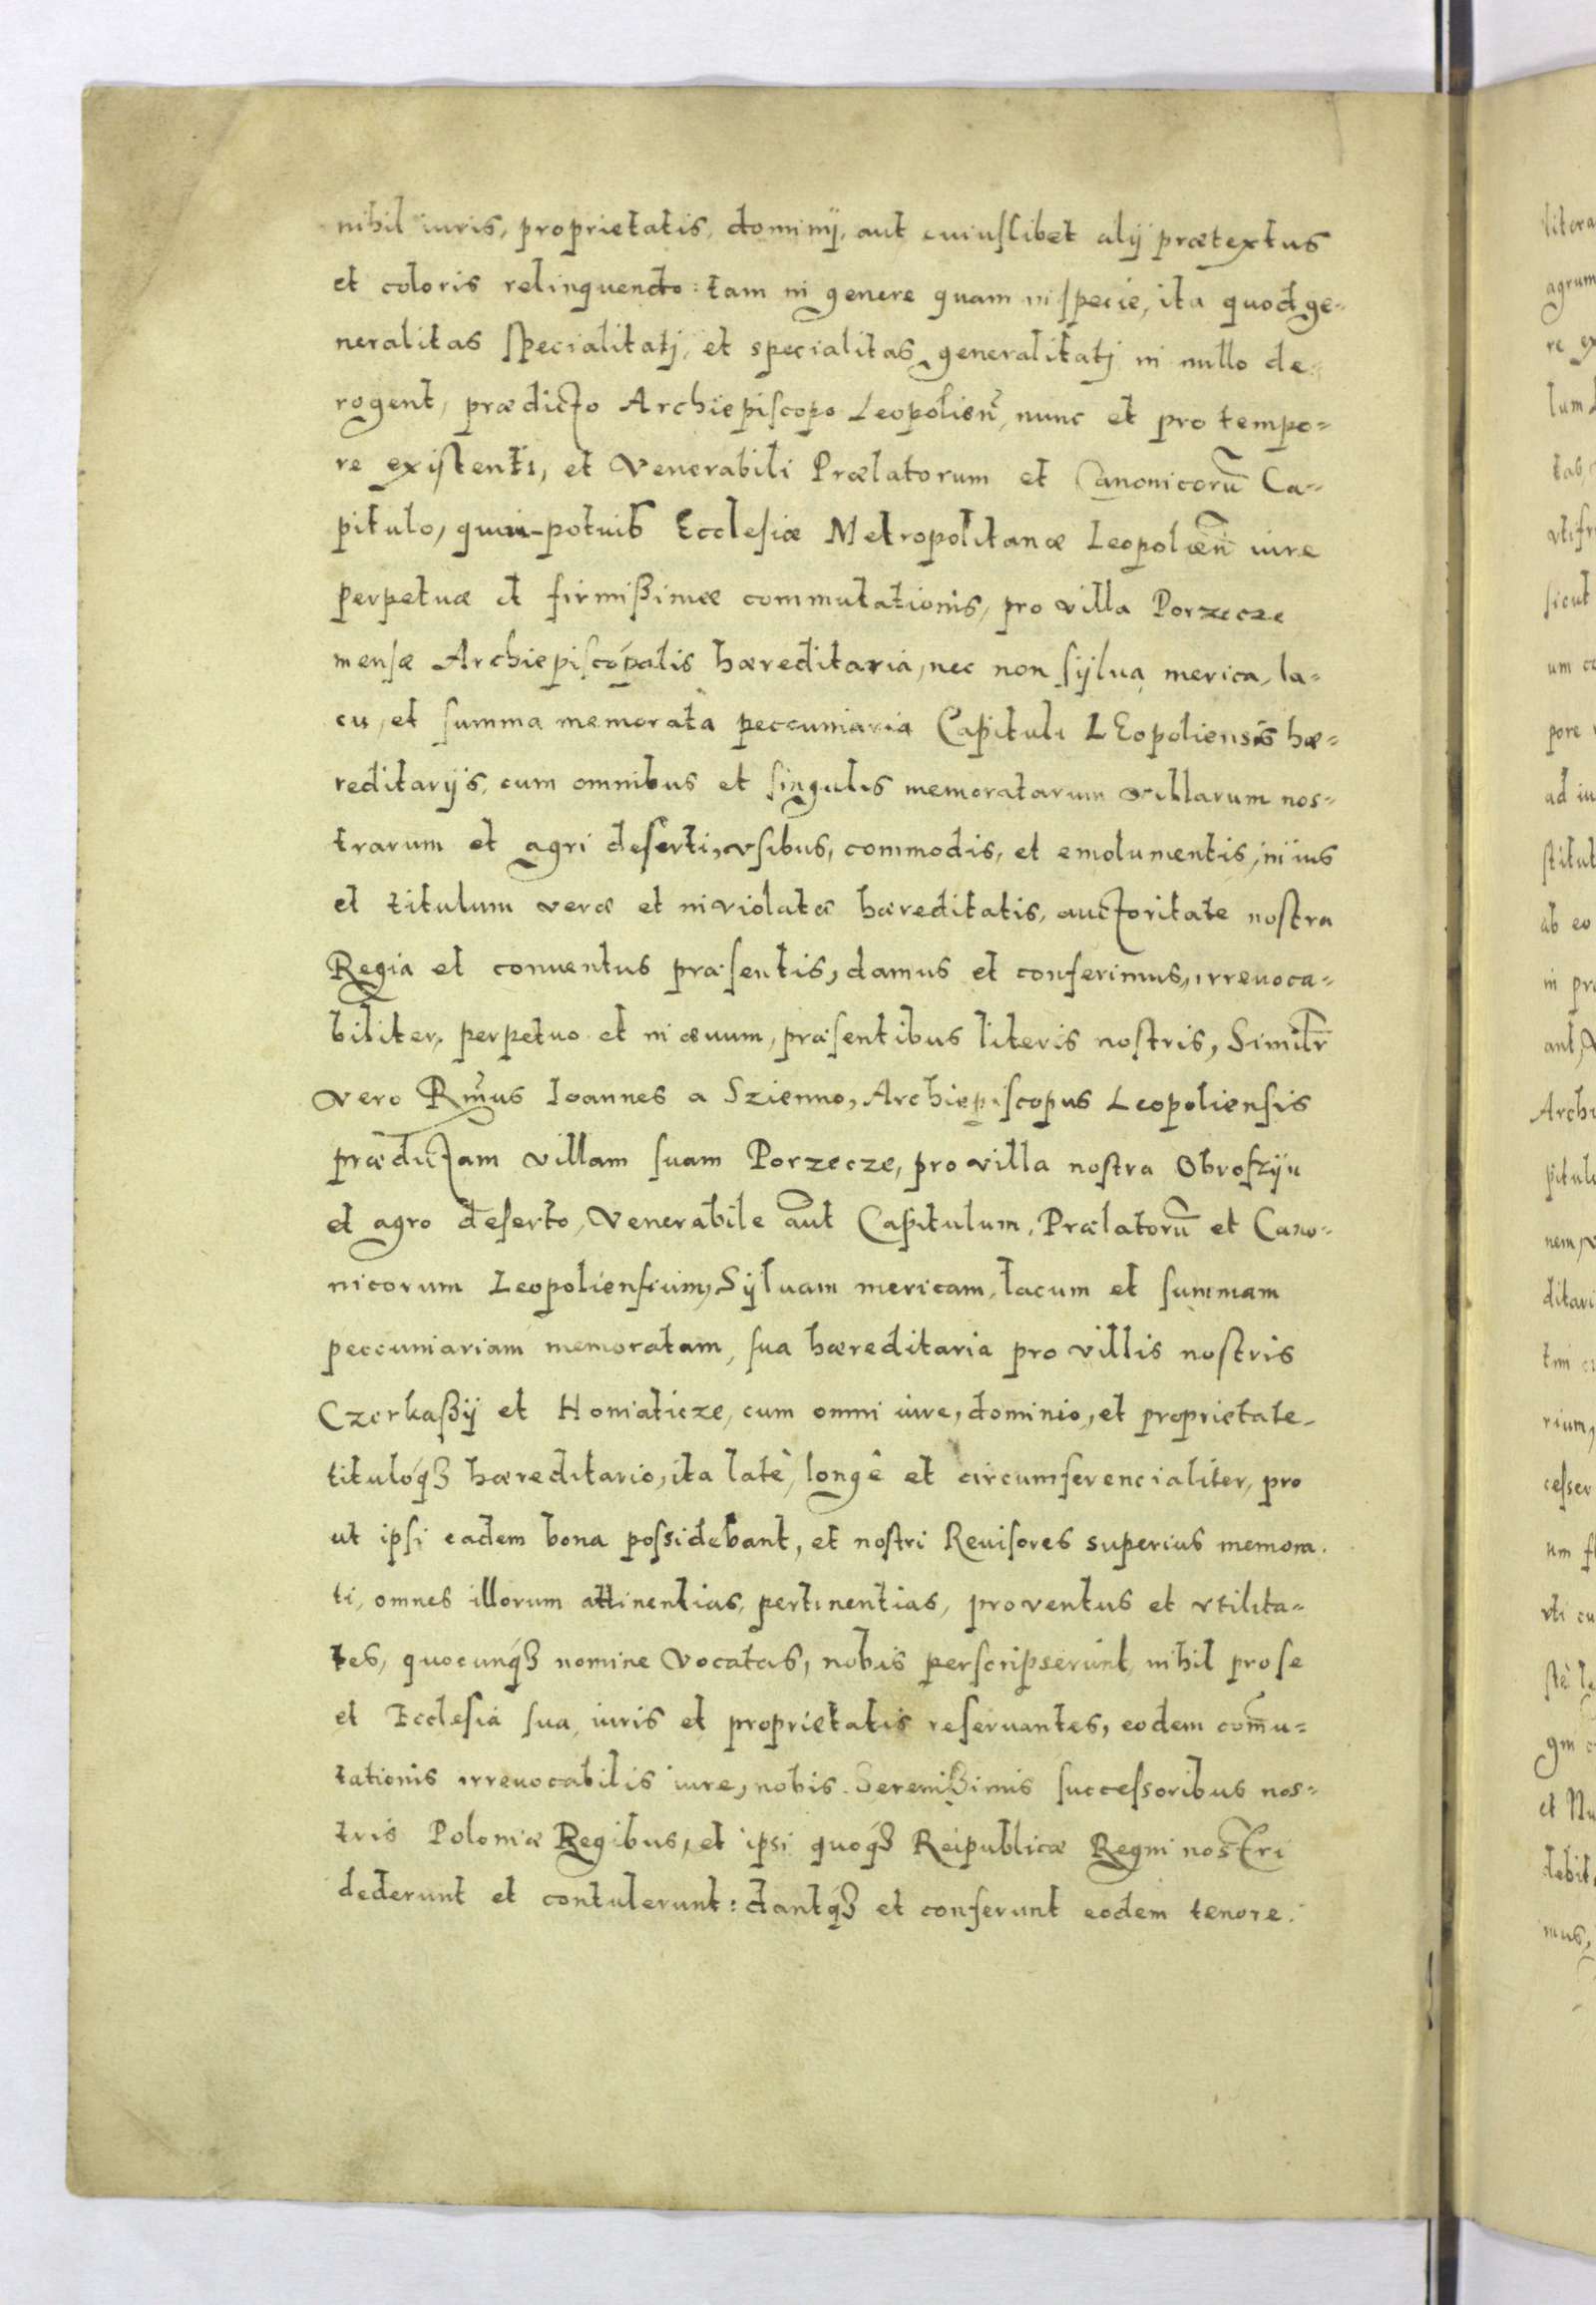 nihil iuris, proprietatis, dominij, aut cuiuslibet alij prætextus
et coloris relinquendo: tam in genere quam in specie, ita quod ge-
neralitas specialitatj, et specialitas generalitatj in nullo de-
rogent, prædicto Archiepiscopo Leopolien̄, nunc et pro tempo-
re existenti, et Venerabili Prælatorum et Canonicorū Ca-
pitulo, quin-potuis Ecclesiæ Metropolitanæ Leopolien̄ iure
perpetuæ et firmißimæ commutationis, pro villa Porzecze
mensæ Archiepiscopalis hæreditaria, nec non sÿlua merica, la-
cu, et summa memorata peccuniaria Capituli LEopoliensis hæ-
reditarijs, cum omnibus et singulis memoratarum villarum nos-
trarum et agri deserti, vsibus, commodis, et emolumentis, in ius
et titulum veræ et inviolatæ hæreditatis, auctoritate nostra
Regia et conuentus præsentis, damus et conferimus, irreuoca-
biliter, perpetuo et in æuum, præsentibus literis nostris, Similr̄
vero Rm̄us Ioannes a Szienno, Archiepiscopus Leopoliensis
prædictam villam suam Porzecze, pro villa nostra Obroszÿn
et agro deserto, Venerabile aūt Capitulum, Prælatorū et Cano-
nicorum Leopoliensium, Sÿluam mericam, lacum et summam
peccuniariam memoratam, sua hæreditaria pro villis nostris
Czerkaßÿ et Honiaticze, cum omni iure, dominio, et proprietate
tituloq́ꝫ hæreditario, ita latè, longê et circumferencialiter, pro
ut ipsi eadem bona possidebant, et nostri Reuisores superius memora
ti, omnes illorum attinentias, pertinentias, proventus et vtilita-
tes, quocunq́ꝫ nomine vocatas, nobis perscripserunt, nihil pro se
et Ecclesia sua iuris et proprietatis reseruantes, eodem com̄u-
tationis irreuocabilis iure, nobis Serenißimis successoribus nos-
tris Poloniæ Regibus, et ipsi quoq́ꝫ Reipublicæ Regni nostri
dederunt et contulerunt: dantq́ꝫ et conferunt eodem tenore.